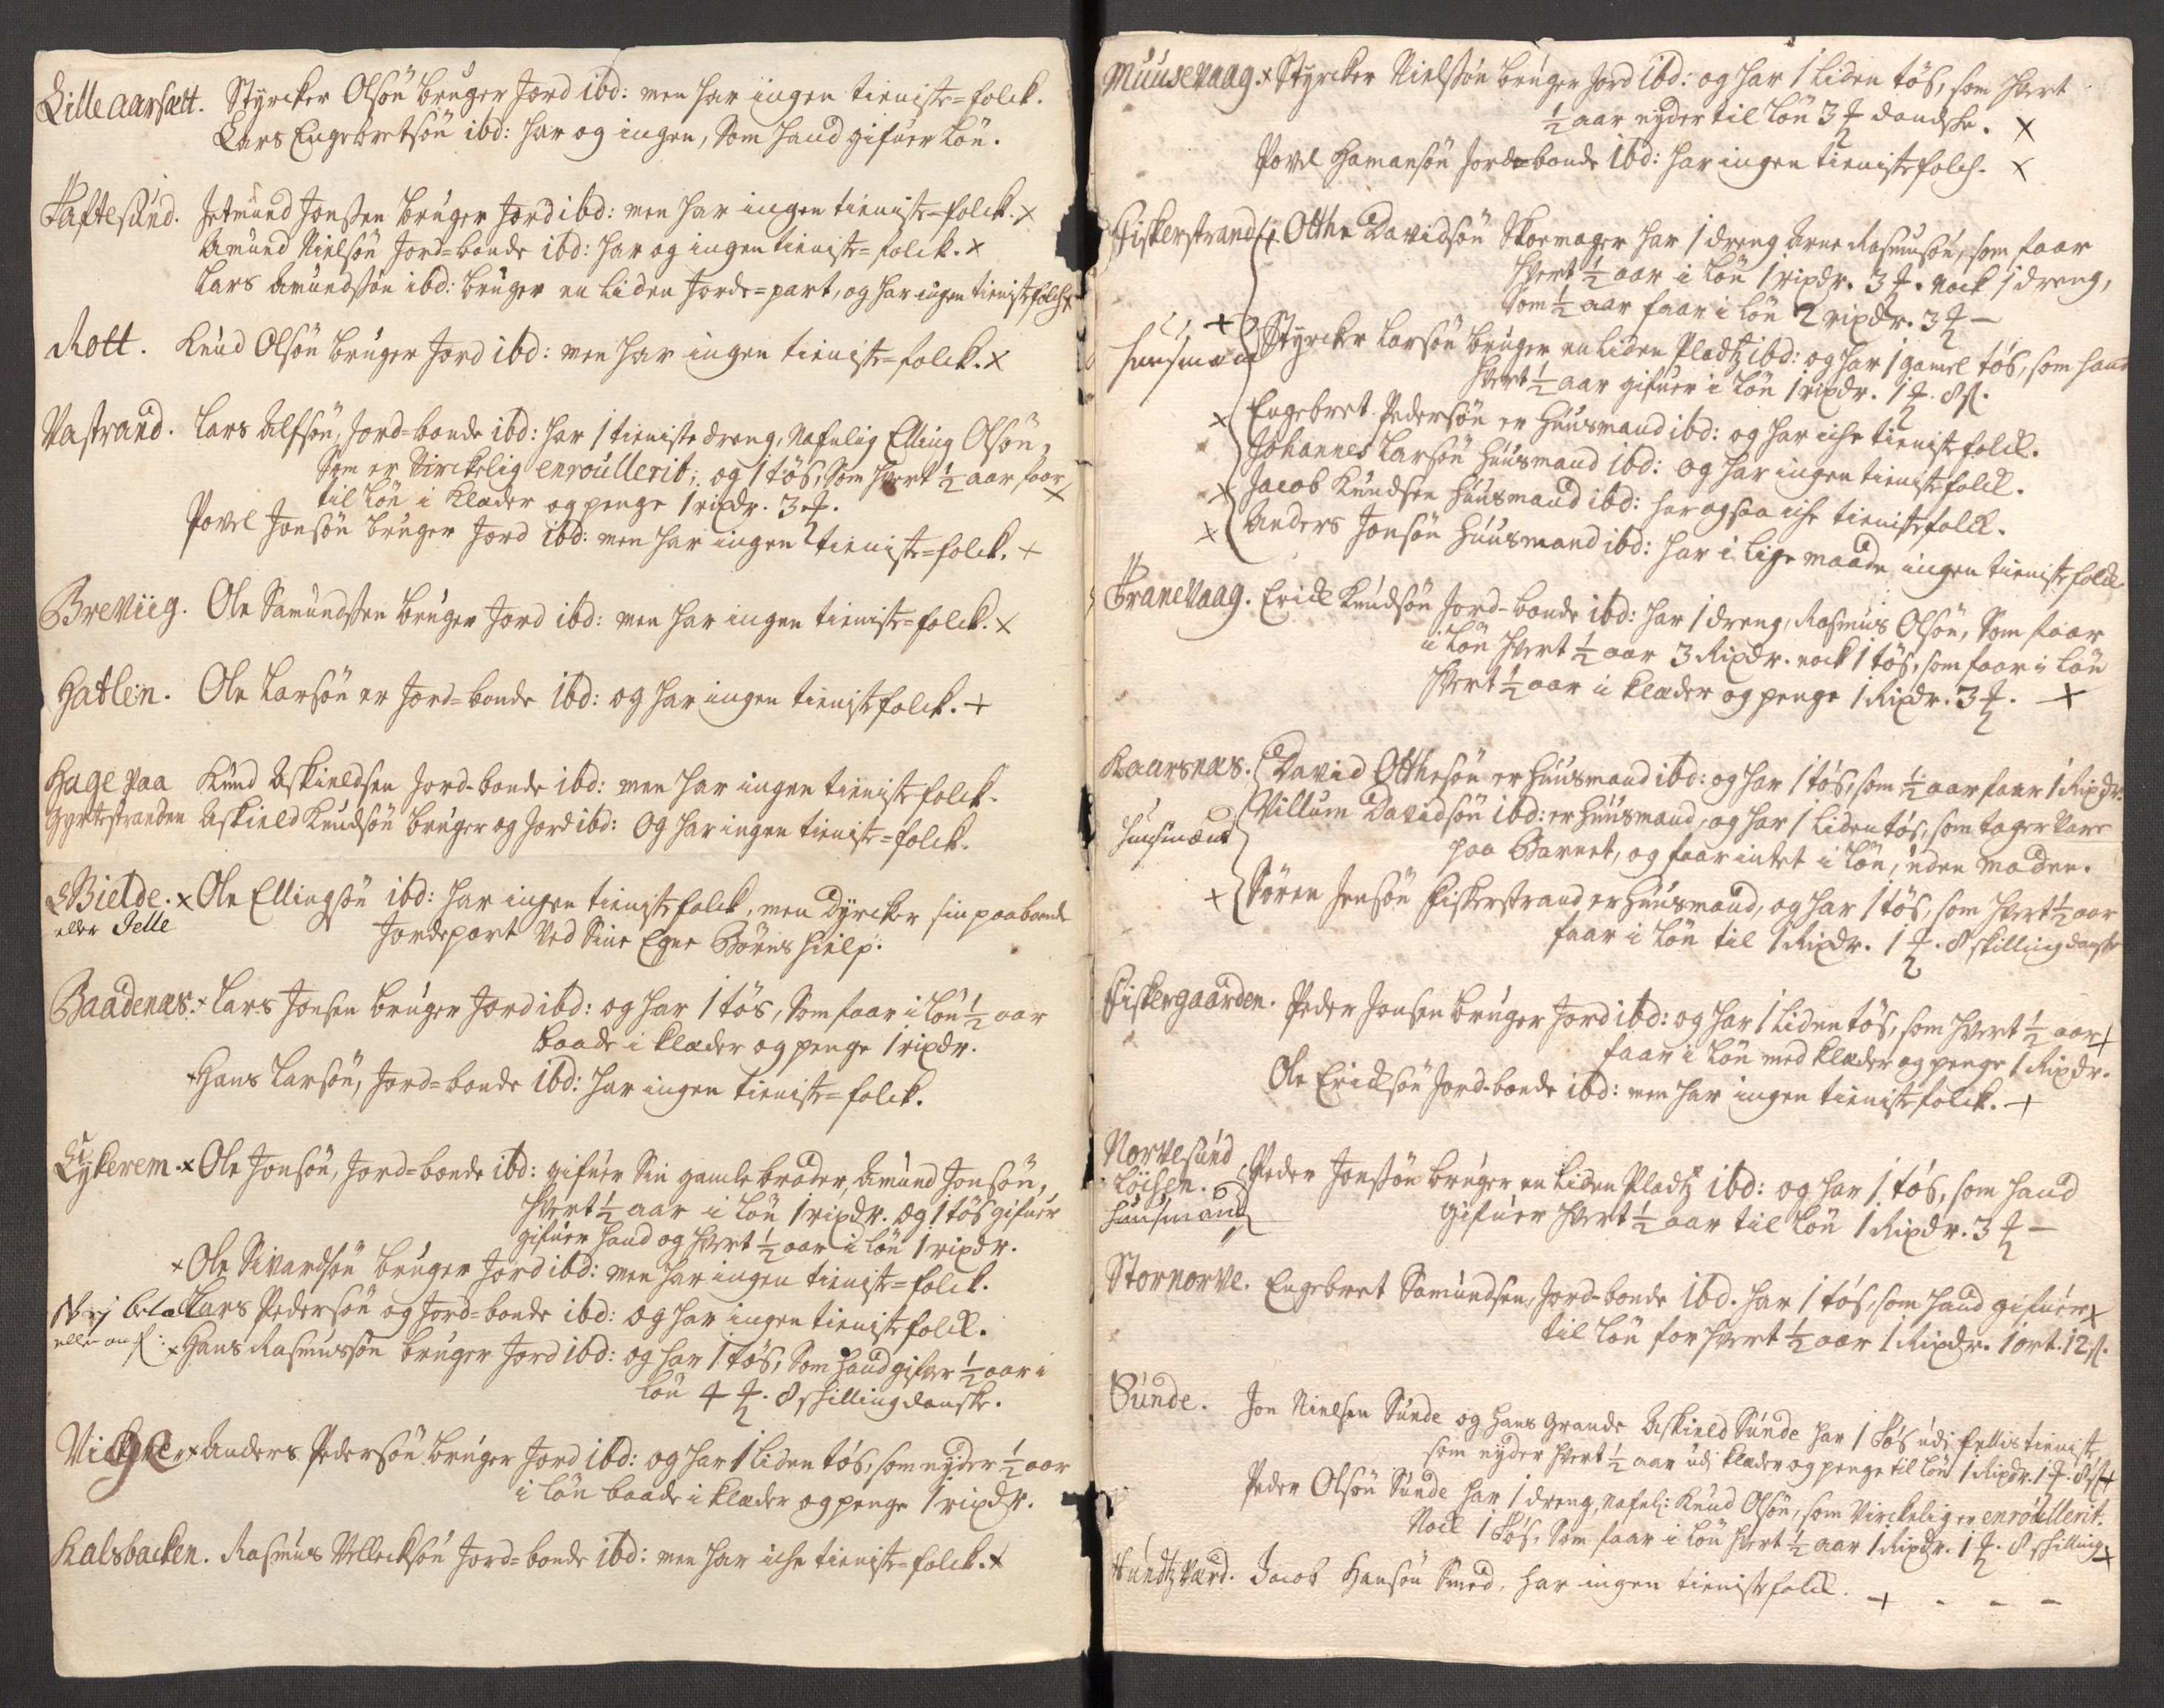 Lille aarsætt. Styrcker Olsön bruger Jord ibd: men har ingen tieniste=folck.
Lars Engebretsön ibd: har og ingen, Som hand gifuer Lön.
Taftesund. Jetmund Jonsen bruger Jord ibd: men har ingen tieniste=folck. x
Amund Nielsön Jord=bonde ibd: har og ingen tieniste=folck. x
Lars Amundsön ibd: bruger en liden Jorde=part, og har ingen tienistefolch x
Rott. Knud Olsön bruger Jord ibd: men har ingen tieniste=folck. x
Vastrand. Lars Alfsön, Jord=bonde ibd: har 1 tieniste dreng, Nafnlig Elling Olsön,
Som er Virckelig enroullerit; og 1 tös, Som hvert ½ aar faar
til Lön i Klæder og penge 1 rixdr. 3 ℔. x
Povel Jonsön bruger Jord ibd: men har ingen tieniste=folck. +
Breviig. Ole Samundsen bruger Jord ibd: men har ingen tieniste=folck. x
Hatlen. Ole Larsön er Jord=bonde ibd: og har ingen tienistefolck. +
Hage paa Knud Askieldsen Jord-bonde ibd: men har ingen tieniste folck.
Gyrtestranden Askield Knudsön bruger og Jord ibd: og har ingen tieniste=folck.
Bielde. x Ole Ellingsön ibd: har ingen tienistefolck, men dyrcker sin paaboende
eller Jelle Jordepart Ved Sine Egne Börns hielp.
Baadenæs. x Lars Jonsen bruger Jord ibd: og har 1 tös, Som faar i Lön ½ aar
baade i klæder og penge 1 rixdr.
+ Hans Larsön, Jord=bonde ibd: har ingen tieniste=folck.
Eykerem. x Ole Jonsön, Jord=bonde ibd: gifuer Sin gamle broder, Amund Jonsön,
hvert ½ aar i Lön 1 rixdr. og 1 tös gifuer
gifuer hand og hvert ½ aar i Lön 1 rixdr.
x Ole Sivardsön bruger Jord ibd: men har ingen tieniste=folck.
Lars Pedersön og Jord-bonde ibd: og har ingen tienistefolck.
x Hans Rasmussön bruger Jord ibd: og har 1 tös, Som hand gifver ½ aar i
Lön 4 ℔. 8 skilling danske.
x Anders Pedersön bruger Jord ibd: og har 1 liden tös, som nyder ½ aar
i Lön baade i klæder og penge 1 rixdr.
Kalsbacken. Rasmus Velleksön Jord=bonde ibd: men har iche tieniste=folck. x
Muusevaag. x Styrcker Nielsön bruger Jord ibd: og har 1 liden tös, som hvert
½ aar nyder til Lön 3 ℔ dandske. x
Povel Hamansön Jord=bonde ibd: har ingen tienistefolch. x
Fiskerstrand Otthe Davidsön Skoemager har 1 dreng Arne Rasmusön, som faar
hvert ½ aar i Lön 1 rixdr. 3 ℔. nock 1 dreng,
som ½ aar faar i Lön 2 rixdr. 3 ℔ —
+ Styrcker Larsön bruger en liden Pladtz ibd: og har 1 gamel tös, som hand
huusmænd hvert ½ aar gifuer i Lön 1 rixdr. 1 ℔. 8 ß.
x Engebret Pedersön er huusmand ibd: og har iche tienistefolck.
Johannes Larsön huusmand ibd: og har ingen tienistefolck.
x Jacob Knudsen huusmand ibd: har ogsaa iche tienistefolck.
x Anders Jonsön huusmand ibd: har i lige maade ingen tienistefolck
Tranevaag. Erick Knudsön Jord-bonde ibd: har 1 dreng, Rasmus Olsön, Som faar
i Lön hvert ½ aar 3 Rixdr. nock 1 tös, som faar i Lön
hvert ½ aar i klæder og penge 1 Rixdr. 3 ℔. +
Kaarsnæs. David Otthesön er huusmand ibd: og har 1 tös, som ½ aar faar 1 Rixdr.
huusmænd Villum Davidsön ibd: er huusmand, og har 1 liden tös, som tager vare
paa Barnet, og faar intet i Lön, uden maden.
+ Sören Jensön Fiskerstrand er huusmand, og har 1 tös, som hvert ½ aar
faar i Lön til 1 Rixdr. 1 ℔. 8 skilling danske
Fiskergaarden. Peder Jonsen bruger Jord ibd: og har 1 liden tös, som hvert ½ aar +
faar i Lön med klæder og penge 1 Rixdr.
Ole Ericksön Jord-bonde ibd: men har ingen tienistefolck. +
Norvesund
Löisen. Peder Jonsön bruger en liden Pladtz ibd: og har 1 tös, som hand
huusmand gifuer hvert ½ aar til Lön 1 Rixdr. 3 ℔ —
Stornorve. Engebret Samundsen, Jord-bonde ibd. har 1 tös, som hand gifuer x
til Lön for hvert ½ aar 1 Rixdr. 1 ort. 12 ß.
Sunde. Jon Nielsen Sunde og Hans Grande Askield Sunde har 1 tös udi fellis tieniste,
som nyder hvert ½ aar udi klæder og penge til Lön 1 Rixdr. 1 ℔. 8 ß +
Peder Olsön Sunde har 1 dreng, Nafnl: Knud Olsön, som Virckelig er enroullerit.
Nock 1 tös, Som faar i Lön hvert ½ aar 1 Rixdr. 1 ℔. 8 skilling x
Sundtzværd. Jacob Hansön Smed, har ingen tienistefolck. + - - -